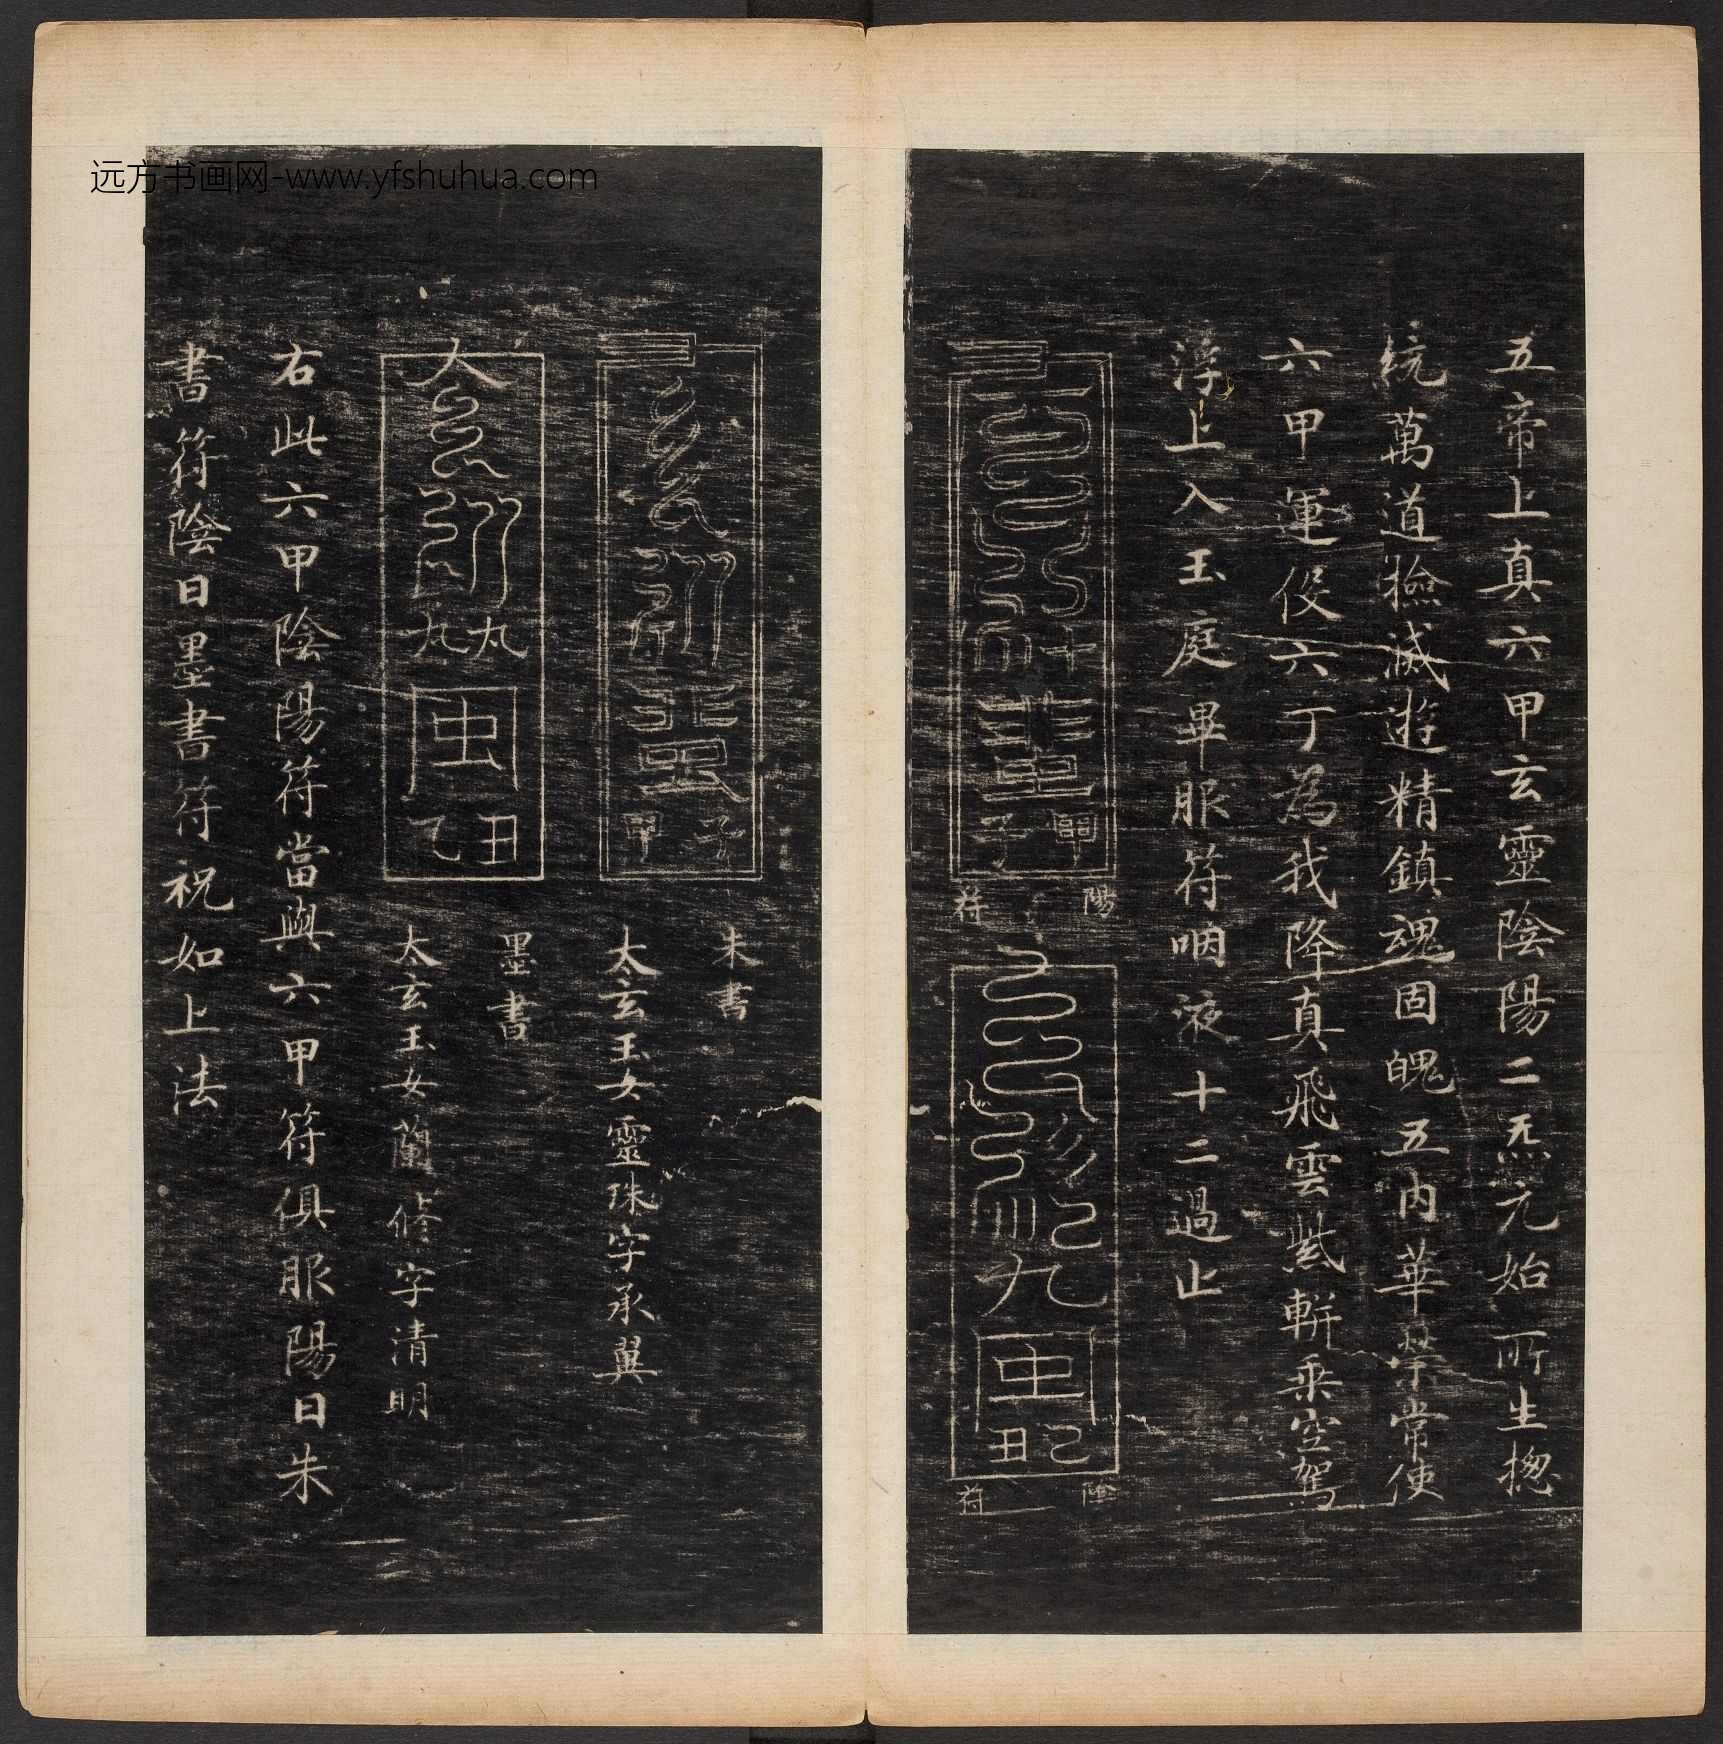 远方书画网-www.yfshuhua.com
五帝上真六甲玄靈陰陽二炁元始所生揔
統萬道撿滅遊精鎮魂固魄五內華榮常使
六甲運役六丁為我降真飛雲紫軿乘空駕
浮上入玉庭畢服符咽液十二過止
甲子
陽符
己丑
陰符
朱書
太玄玉女靈珠字承翼
子甲
墨書
太玄玉女蘭修字清明
丑乙
右此六甲陰陽符當與六甲符俱服陽日朱
書符陰日墨書符祝如上法